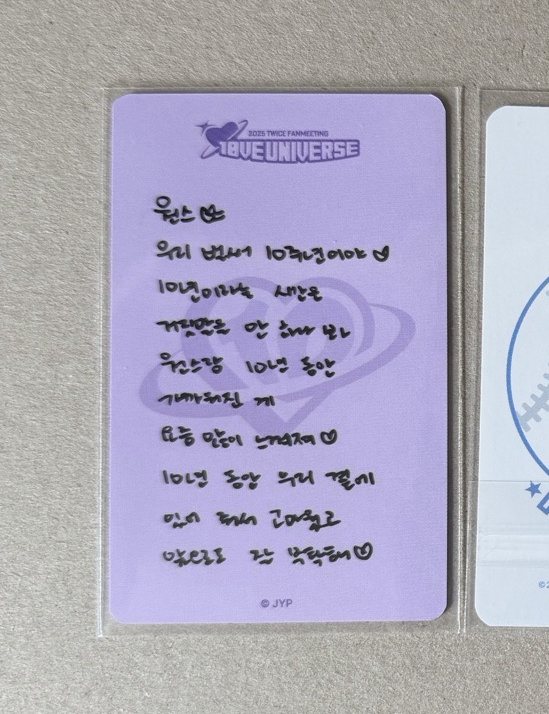 2025 TWICE FANMEETING
10VE UNIVERSE
원스
우리 벌써 10주년이야♡
10년이라는 시간은
거짓말을 안 하나 봐
원스랑 10년 동안
가까워진 게
요즘 많이 느껴져♡
10년 동안 우리 곁에
있어 줘서 고마웠고
앞으로도 잘 부탁해♡
© JYP